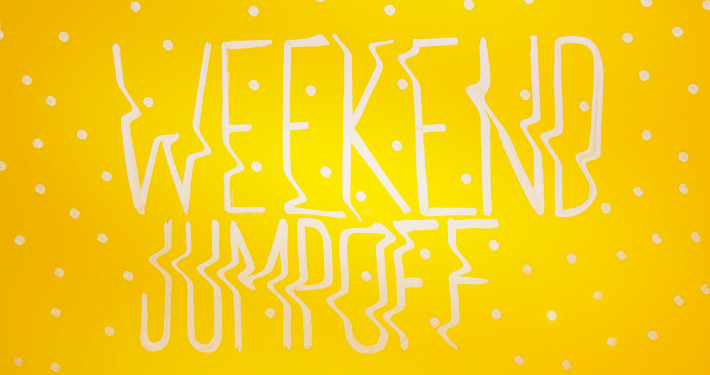 WEEKEND
JUMPOFF